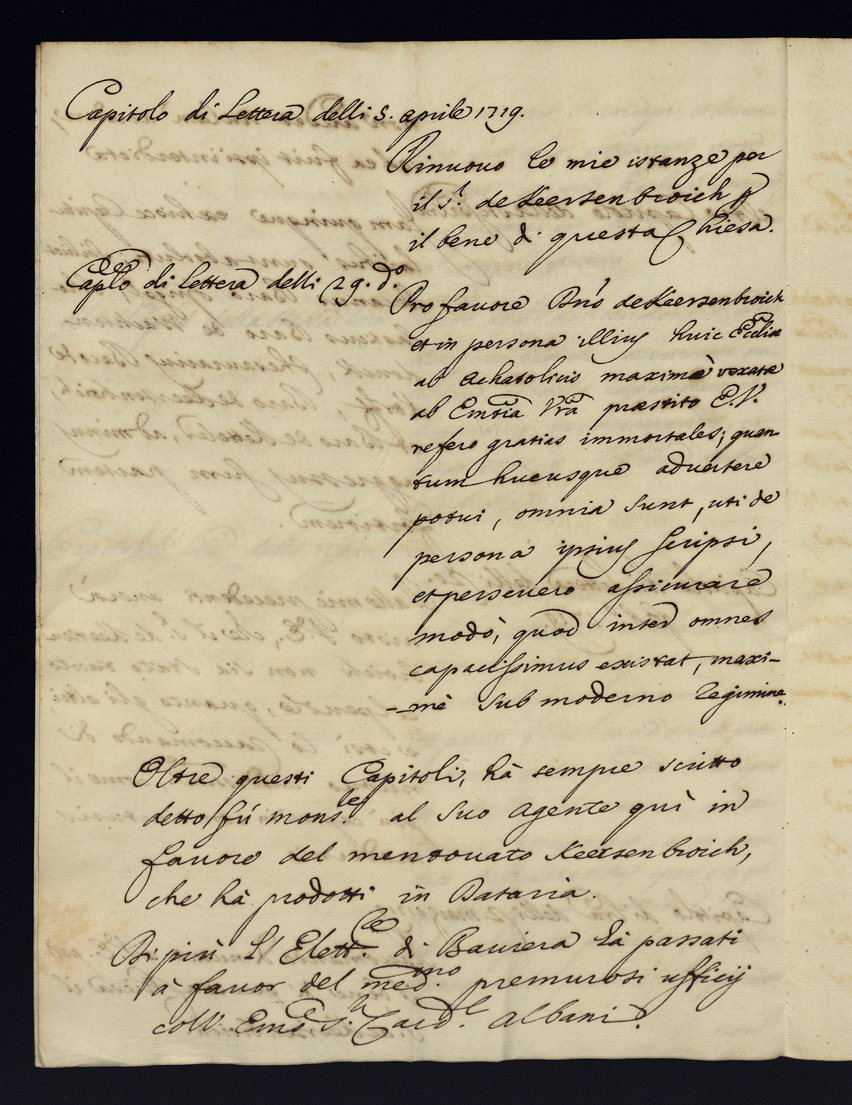 Capitolo di Lettera delli 5. aprile 1719.
Rinuovo le mie istanze per
il S.r de Keersenbroich p
il bene di questa Chiesa.
Caplo di Lettera delli 29. do.
Pro favore Dni de Keersenbroich
et in persona illius huic Ecclia
ab Achatolicis maximè vexatæ
ab Emtia Vra præstito E.V.
refero gratias immortales; quan
tum hucusque advertere
potui, omnia sunt, uti de
persona ipsius scripsi,
et persevero assicurare
modò, quod inter omnes
capacissimus existat, maxi-
-mè sub moderno regimine.
Oltre questi Capitoli, hà sempre scritto
detto fù mons.re al suo agente quì in
favore del mentovato Keersenbroich,
che hà prodotti in Dataria.
Di più l'Elett.le di Baviera hà passati
à favor del med.mo premurosi ufficij
coll' Emo S.r Card.l Albani.